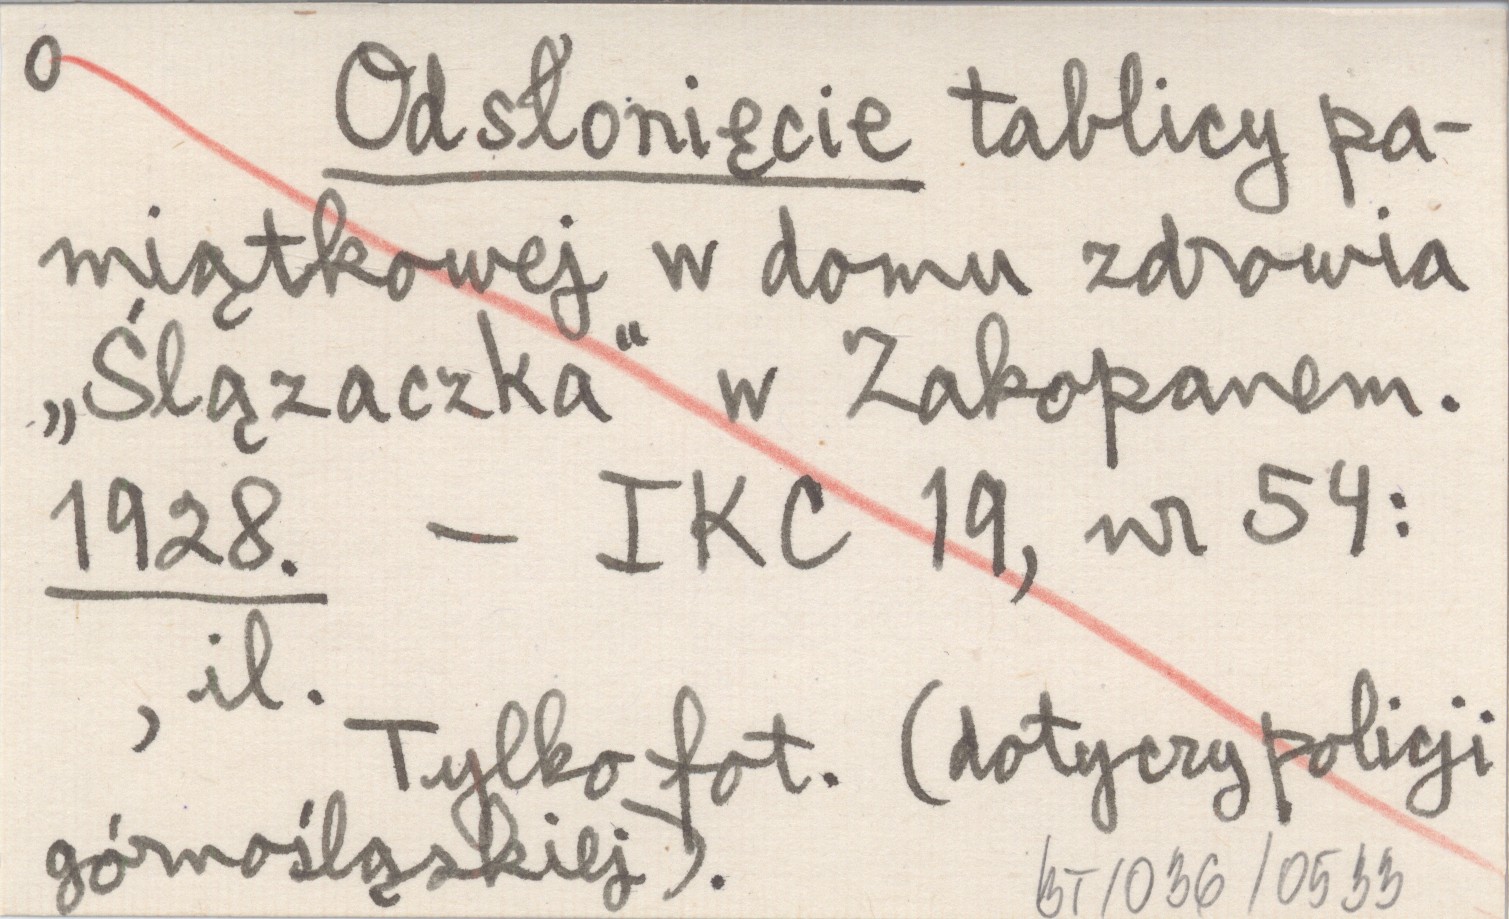 0
Odsłonięcie tablicy pa-
miątkowej w domu zdrowia
„Ślązaczka“ w Zakopanem.
1928. — IKC 19, nr 54:
, il.
Tylko fot. (dotyczy policji
górnośląskiej).
BT/036/0533